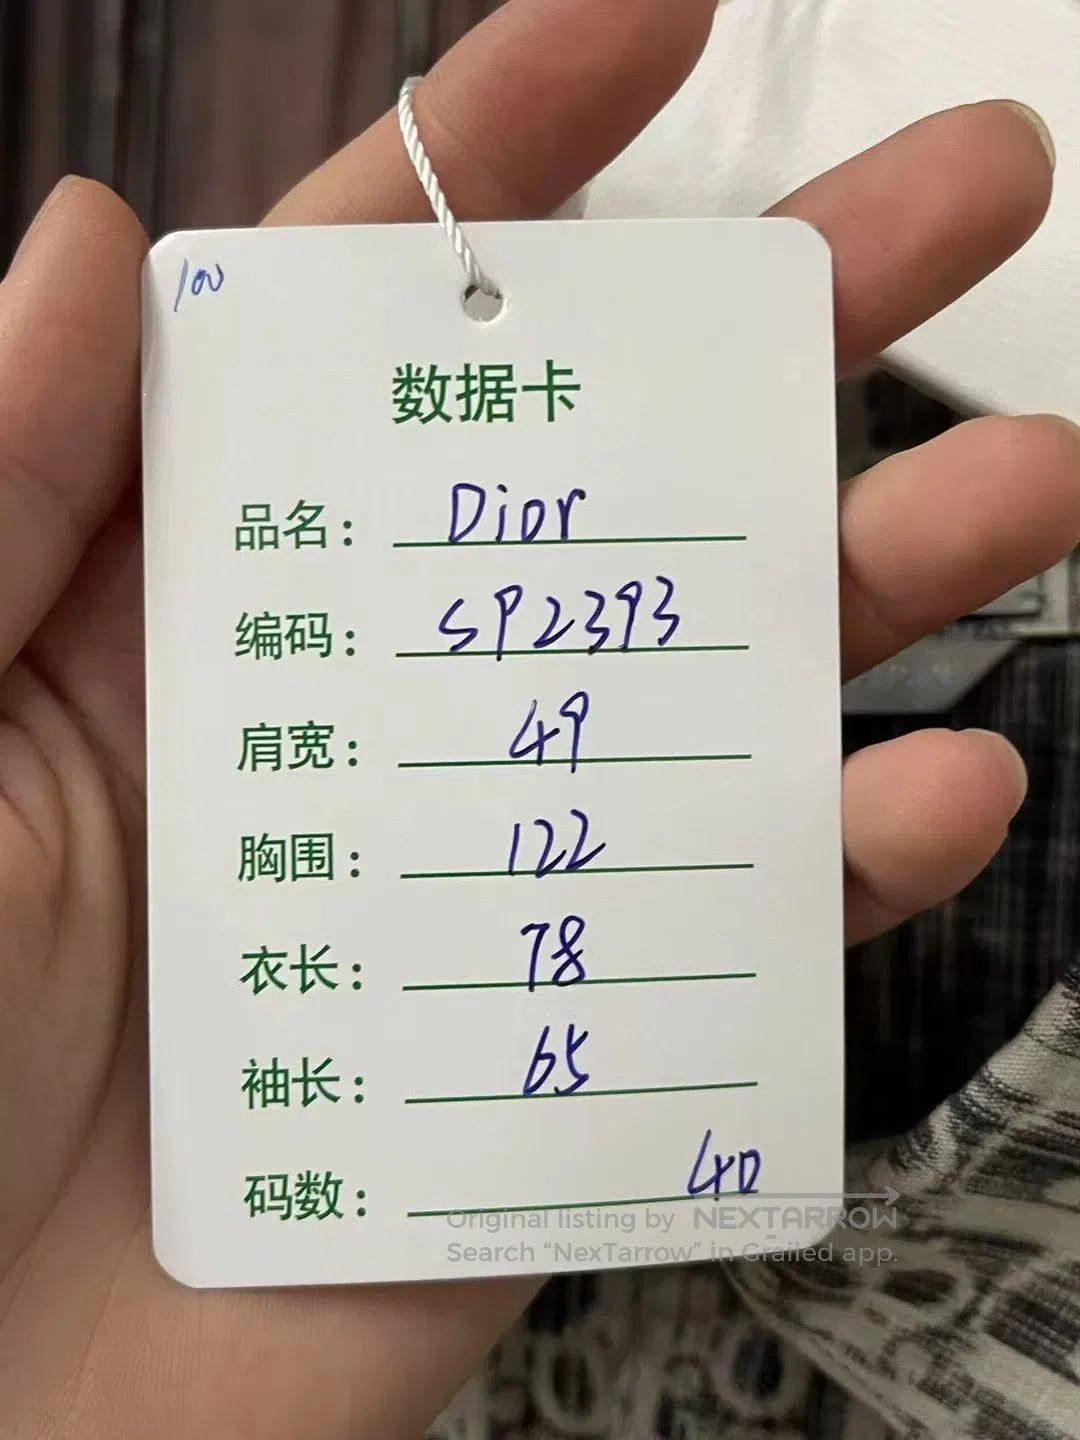 100
数据卡
品名: Dior
编码: SP2393
肩宽: 49
胸围: 122
衣长: 78
袖长: 65
码数: 40
Original listing by NEXTARROW
Search “NexTarrow” in Grailed app.